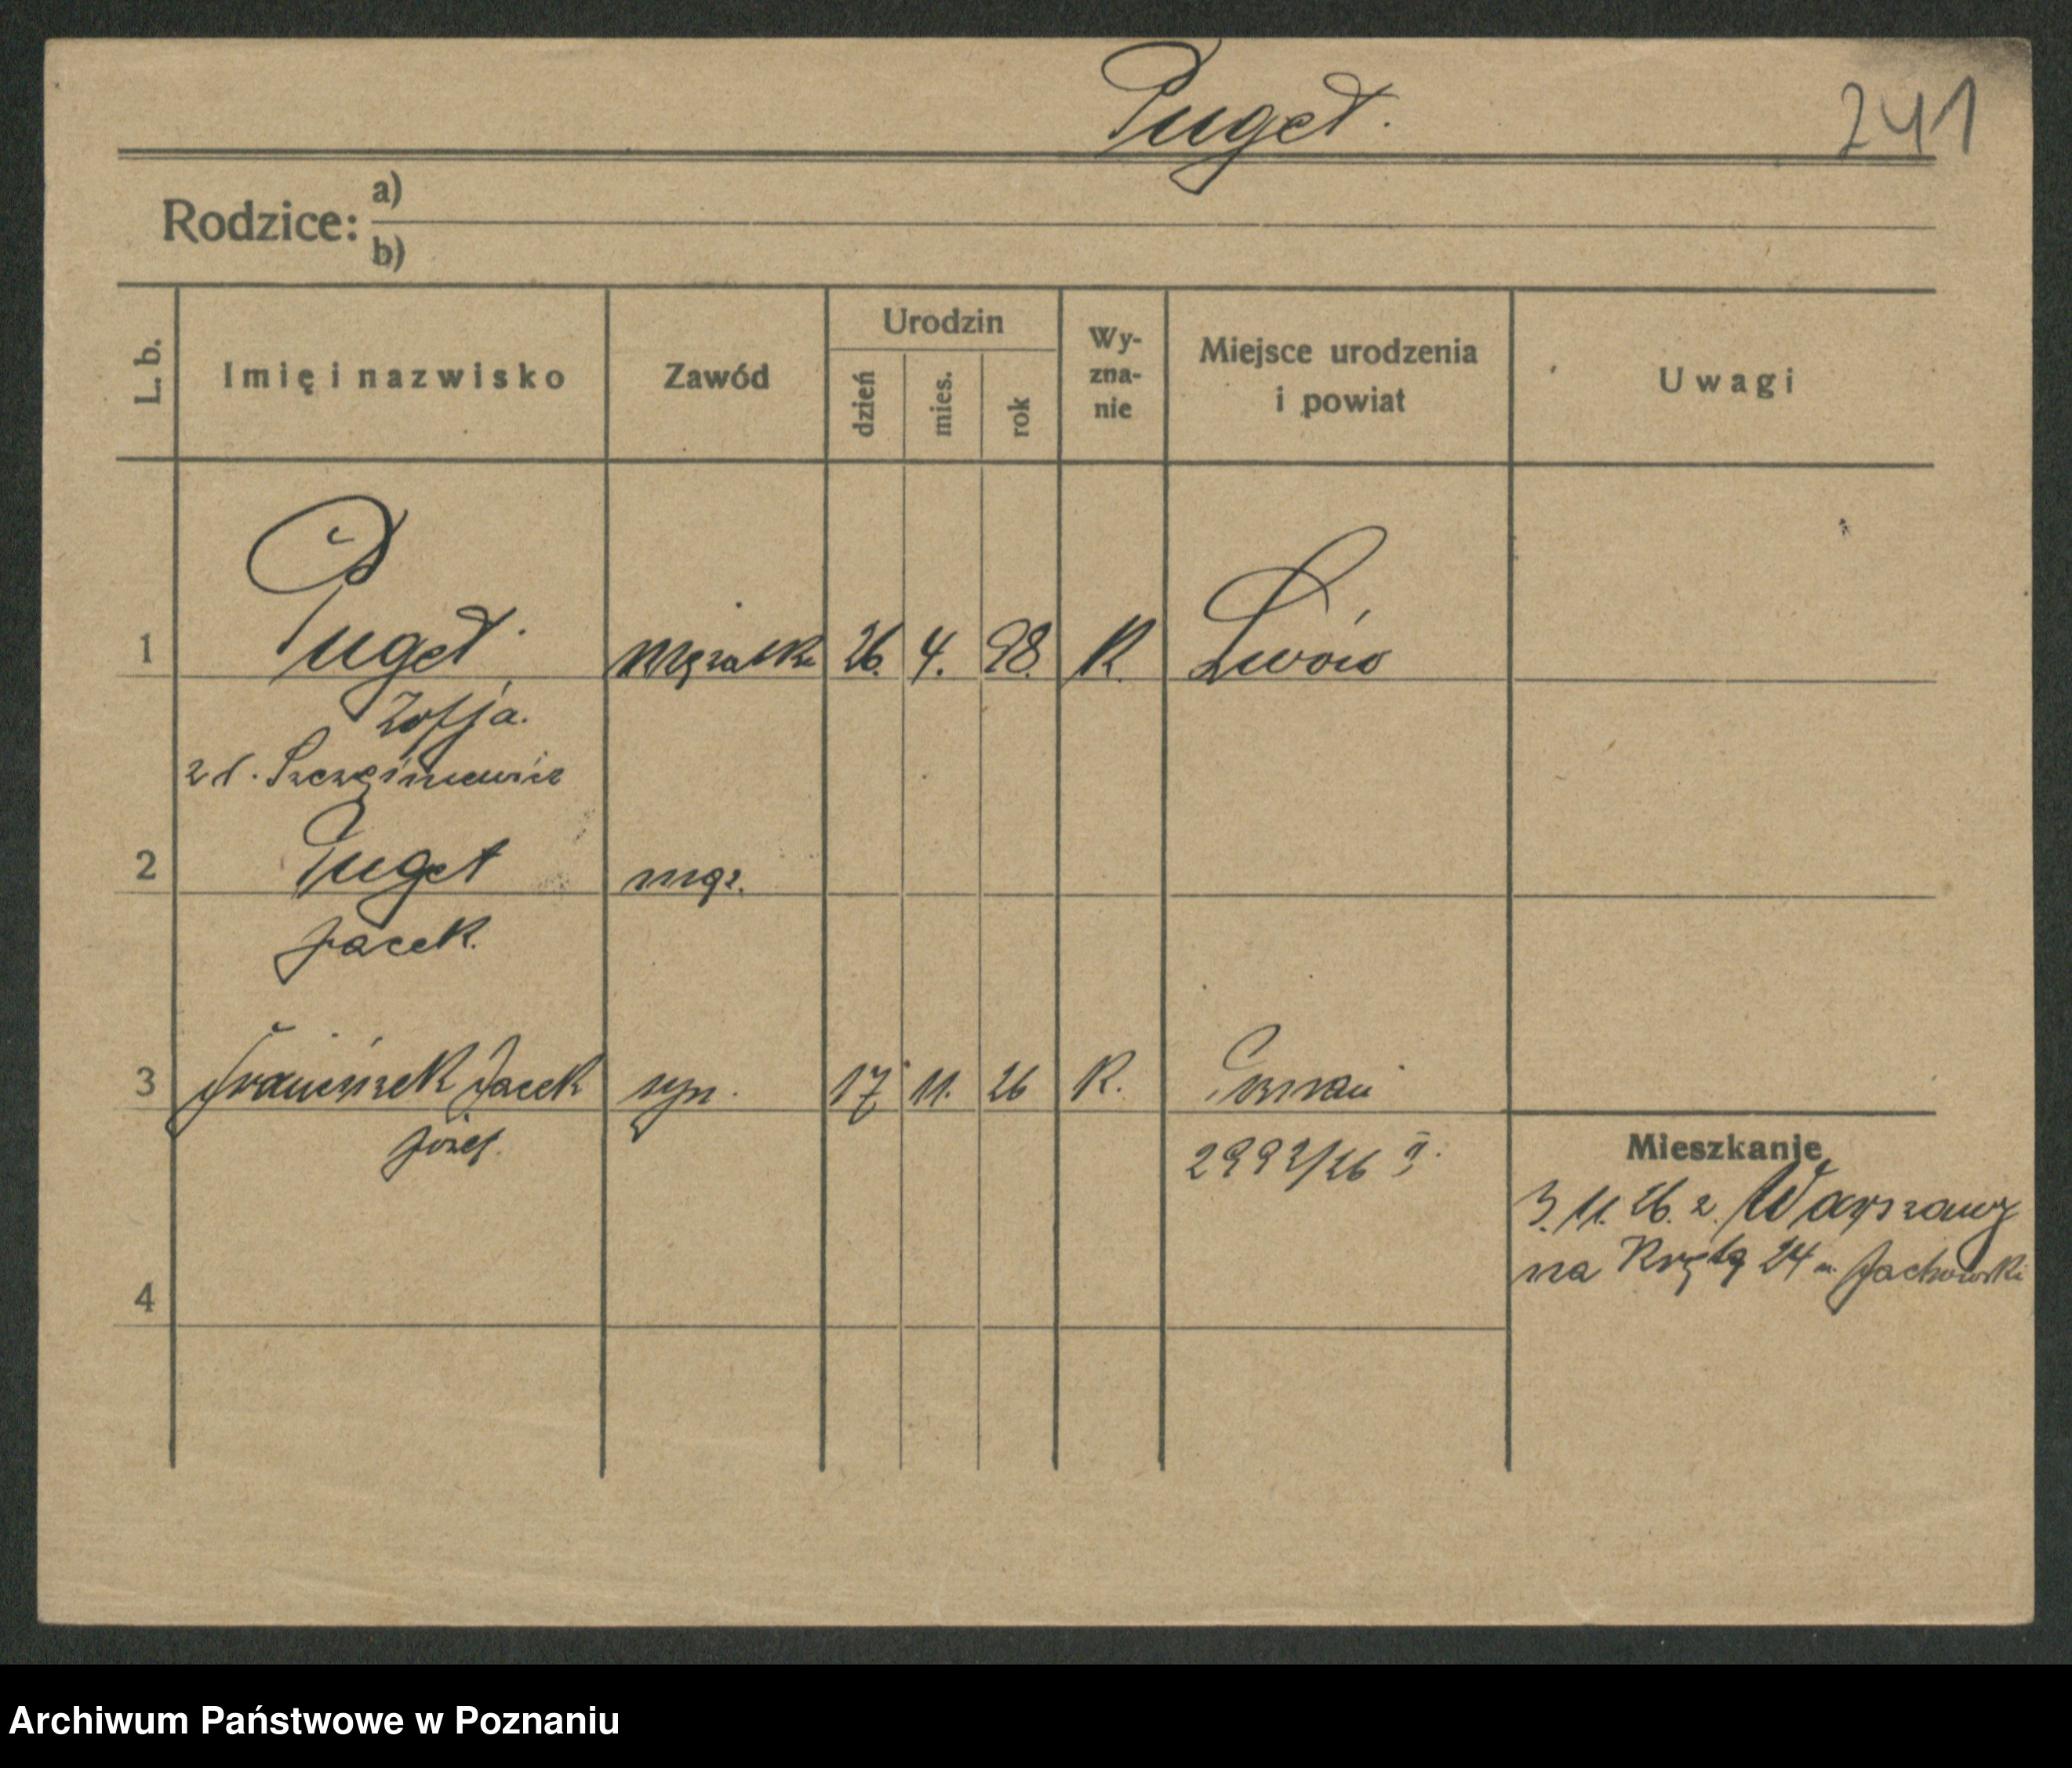 Puget.
241
Rodzice: a)
b)
L. b.
Imię i nazwisko
Zawód
Urodzin
dzień
mies.
rok
Wy-
zna-
nie
Miejsce urodzenia
i powiat
Uwagi
1 Puget mężatka 26. 4. 98. K. Lwów
Zofja.
2 Puget mąż.
Jacek.
3 Franciszek Jacek syn. 17 11. 26 K. Poznań
Józef.
2992/26 I.
Mieszkanie
3. 11. 26. z Warszawy
na Krętą 24 Jachowski
4
Archiwum Państwowe w Poznaniu